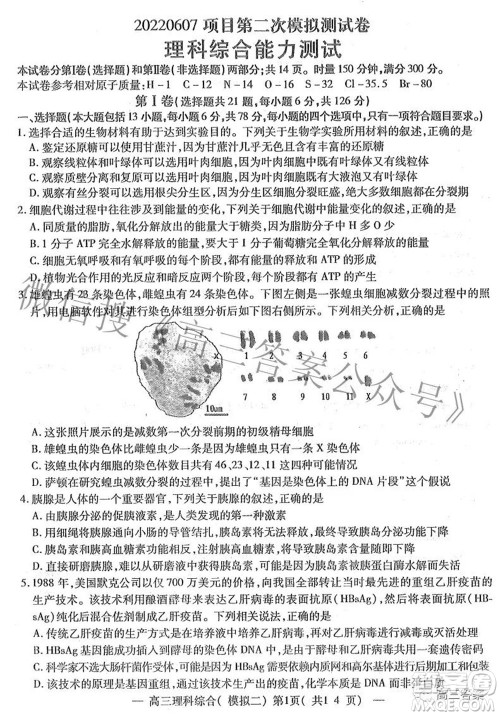 20220607 项目第二次模拟测试卷
理科综合能力测试
本试卷分第Ⅰ卷(选择题)和第Ⅱ卷(非选择题)两部分;共14页。时量150分钟,满分300分。
本试卷参考相对原子质量:H-1 C-12 N-14 O-16 Cl-35.5 Br-80
第Ⅰ卷(选择题共21题,每小题6分,共126分)
一、选择题(本大题包括13小题,每小题6分,共78分,每小题的四个选项中,只有一个符合题目要求。)
1. 选择合适的生物材料有助于达到实验目的。下列关于生物学实验所用材料的叙述,正确的是
A. 鉴定还原糖可以使用甘蔗汁,因为甘蔗汁几乎无色且含有丰富的还原糖
B. 观察线粒体和叶绿体可以选用叶肉细胞,因为叶肉细胞既有线粒体又有叶绿体
C. 观察质壁分离和复原可以选用叶肉细胞,因为叶肉细胞既有大液泡又有叶绿体
D. 观察有丝分裂可以选用蝗虫精巢,因为蝗虫细胞分裂旺盛,绝大多数细胞都在分裂期
2. 细胞代谢过程中往往涉及到能量的变化。下列关于细胞代谢中能量的叙述,正确的是
A. 同质量的脂肪,氧化分解释放的能量大于糖类,因为脂肪分子中H多O少
B. 1分子ATP完全水解释放的能量,要大于1分子葡萄糖完全氧化分解释放的能量
C. 细胞无氧呼吸和有氧呼吸的每个阶段,都伴随着ATP的生成
D. 植物光合作用的光反应和暗反应两个阶段,都伴随着ATP的生成
3. 雄蝗虫有23条染色体,雌蝗虫有24条染色体。下图左侧为一雄蝗虫细胞减数分裂过程中的照
片,用电脑软件对其进行染色体组型分析后如下图右侧。下列叙述正确的是
1 2 3 4 5 6
7 8 9 10 11 X
10um
A. 这张照片展示的是减数第一次分裂前期的初级精母细胞
B. 雄蝗虫的染色体比雌蝗虫少一条,因为雄蝗虫只有一条X染色体
C. 该雄蝗虫的细胞内染色体数目可能有46、23、12、11这四种可能性
D. 萨顿在研究蝗虫细胞时,提出了“基因是控制生物性状的、有染色体上的DNA片段”这个概念
4. 胰腺是人体的一个重要器官。下列有关胰腺的叙述,正确的是
A. 由胰腺分泌的促胰液素,是人类发现的第一种激素
B. 胰岛素可用于降低血糖浓度,若给正常人长期使用,最终将导致胰岛分泌功能减退
C. 由胰腺产生的胰岛素,可通过狭小的导管结构,弥散进入血液
D. 胰岛素和胰高血糖素均可口服给药,因为两者不会被胃蛋白酶水解而失活
5. 1988年,美国默克公司仅以700万美元的价格,向我国全部转让当时最先进的重组乙肝疫苗的
生产技术。该技术利用酿酒酵母表达乙肝病毒的表面抗原(HBsAg),纯化后得到的表面抗原
(HBsAg)可刺激人体产生免疫力。下列叙述正确的是
A. 传统乙肝疫苗的生产方式是灭活病毒,两种疫苗均可对乙肝病毒等进行大规模培养
B. 重组乙肝疫苗的生产过程中需将HBsAg基因导入酵母菌
C. 科学家不选用大肠杆菌作为受体,因其缺乏内质网和高尔基体进行加工